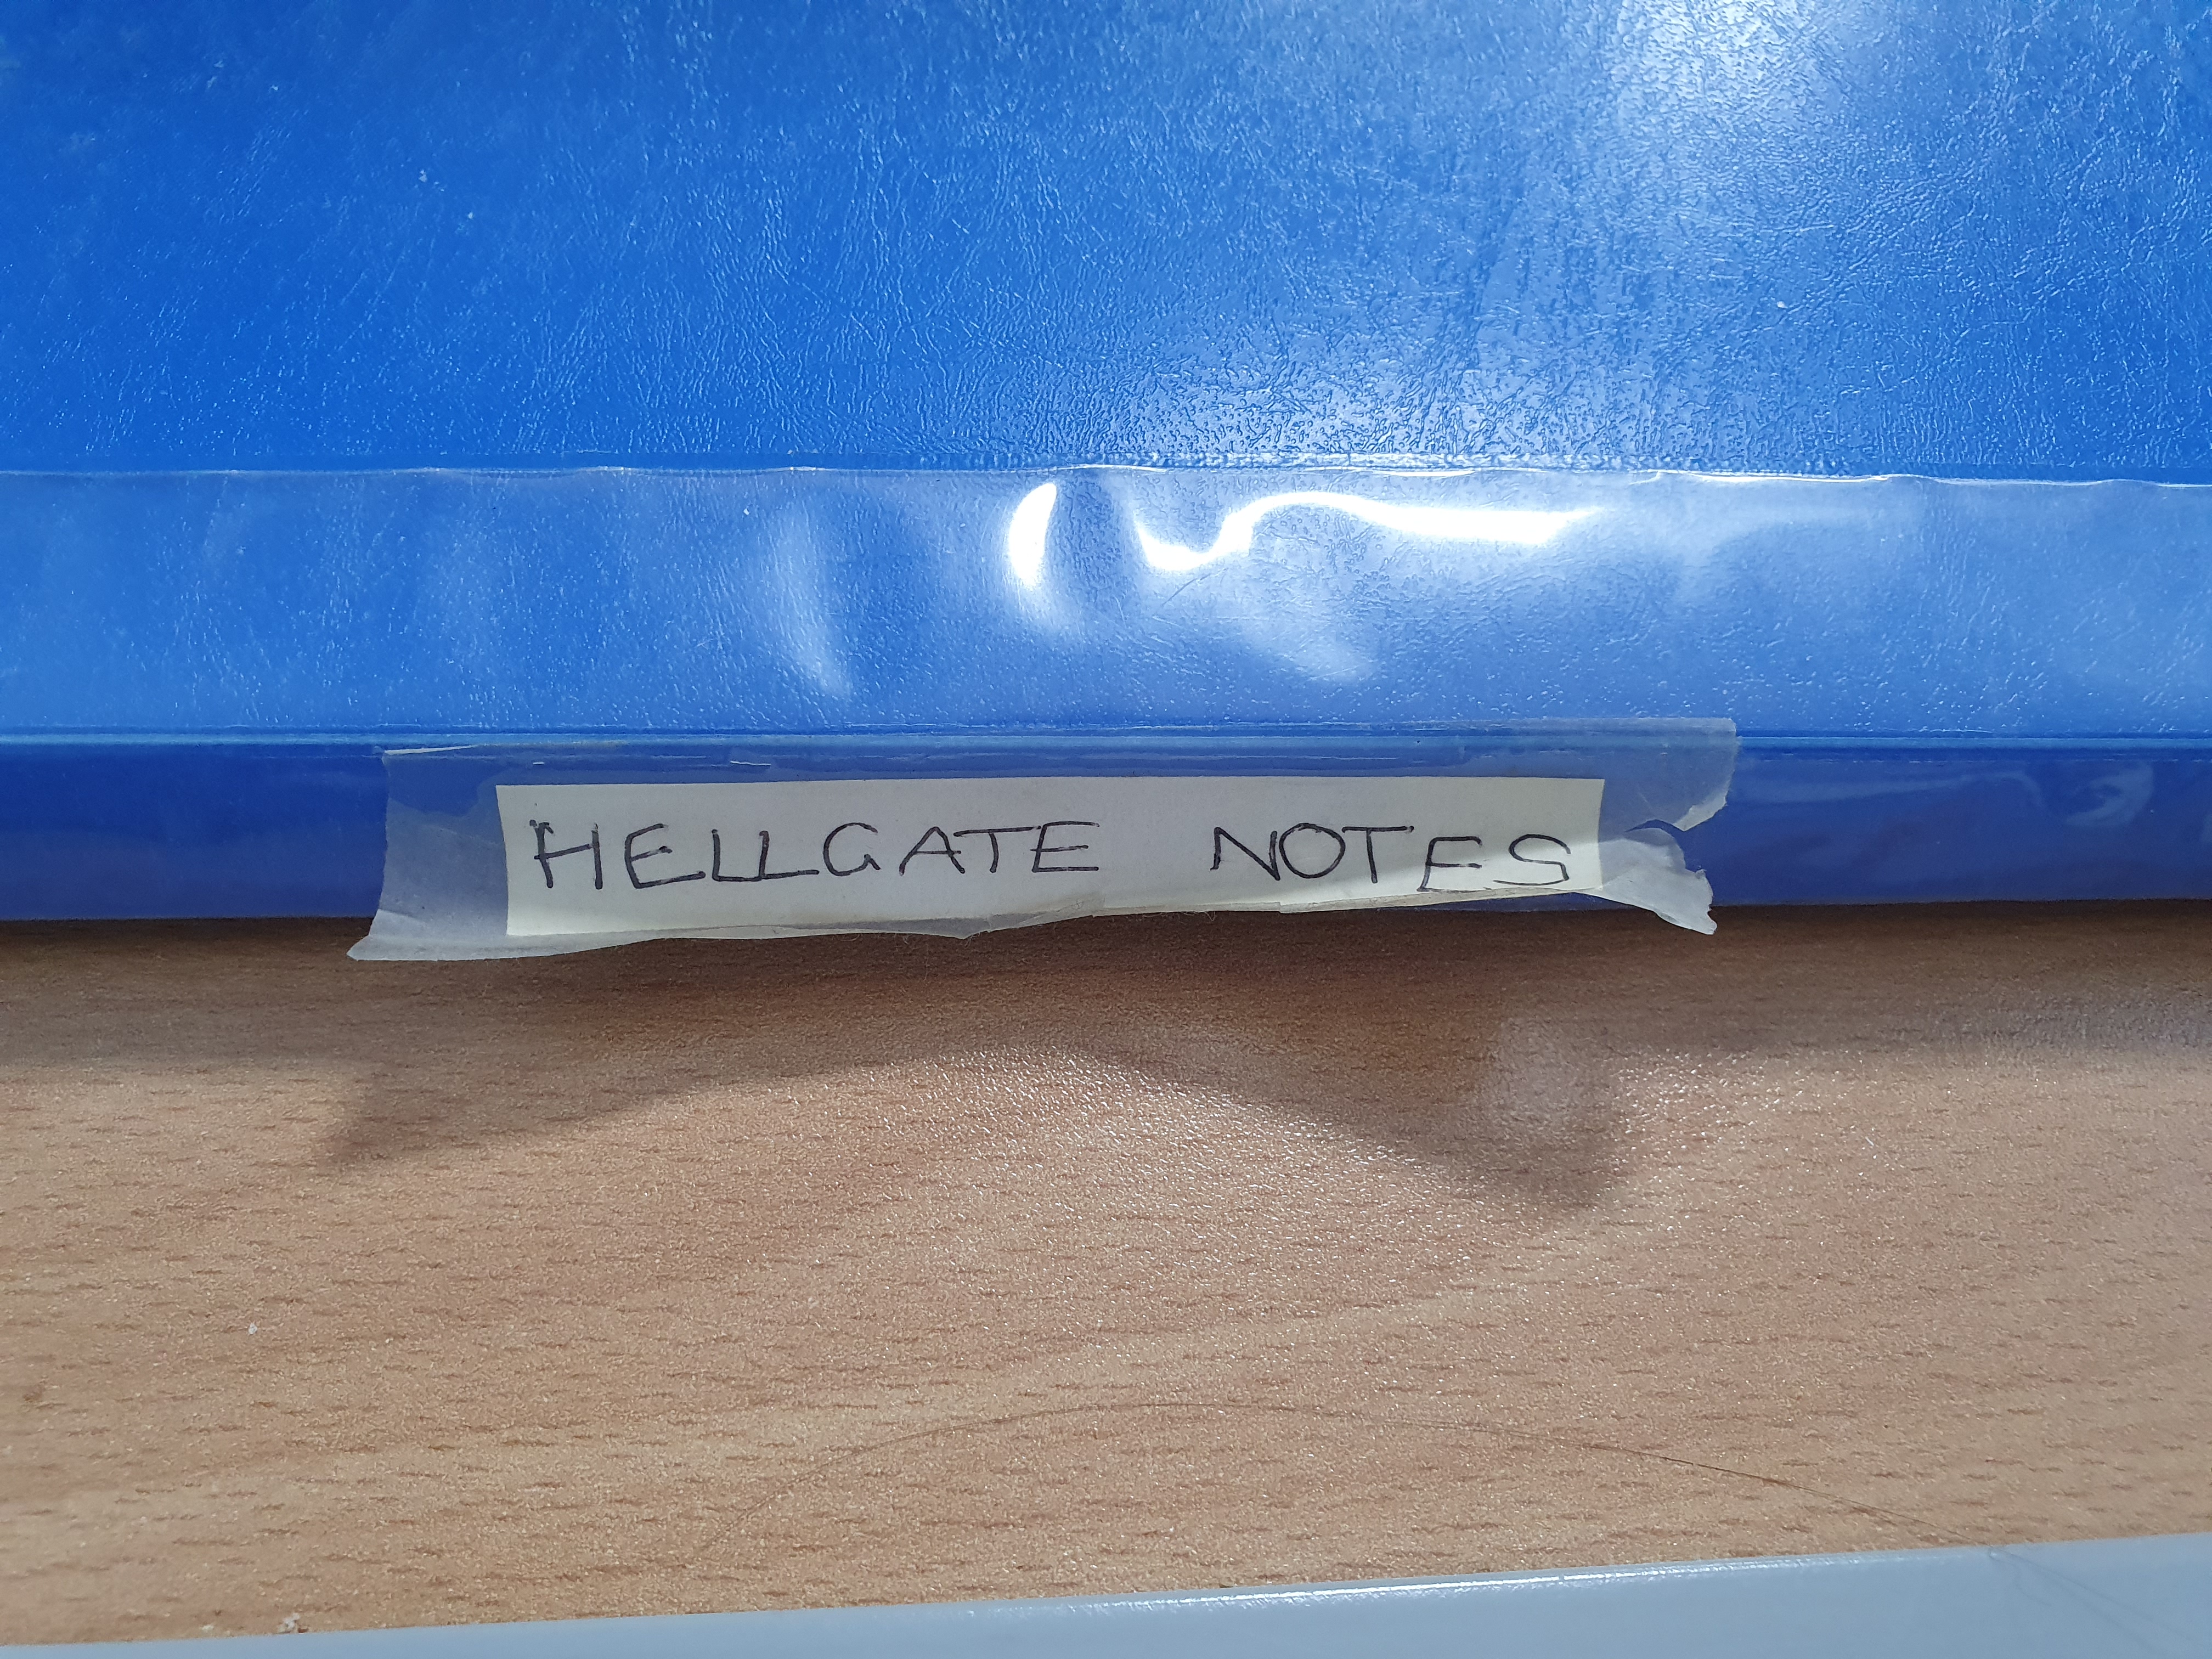 HELLGATE NOTES